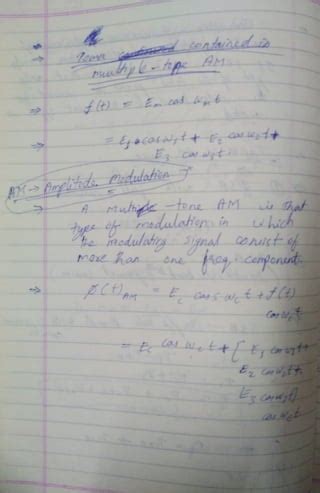 Power contained in
multiple-tone AM
⇒ f(t) = Em cos ωmt
⇒ = E1 cos ω1t + E2 cos ω2t +
E3 cos ω3t
AM → Amplitude Modulation
⇒ A multiple-tone AM is that
type of modulation in which
the modulating signal consist of
more than one freq component.
⇒ φ(t)AM = Ec cos ωct + f(t)
cos ωct
= Ec cos ωct + [E1 cos ω1t +
E2 cos ω2t +
E3 cos ω3t]
cos ωct